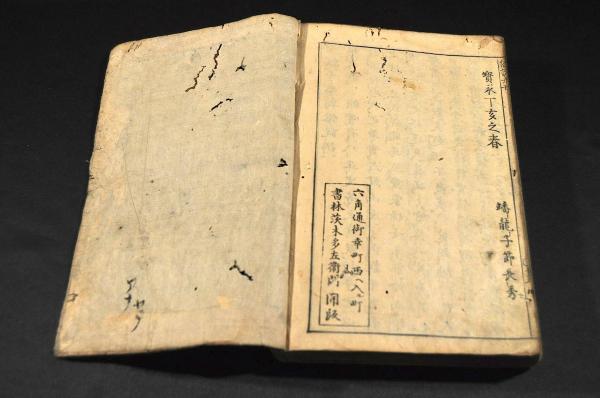 寳永丁亥之春
蟠龍子節長秀
六角通御幸町西ヘ入ル町
書林茨木多左衛門開版